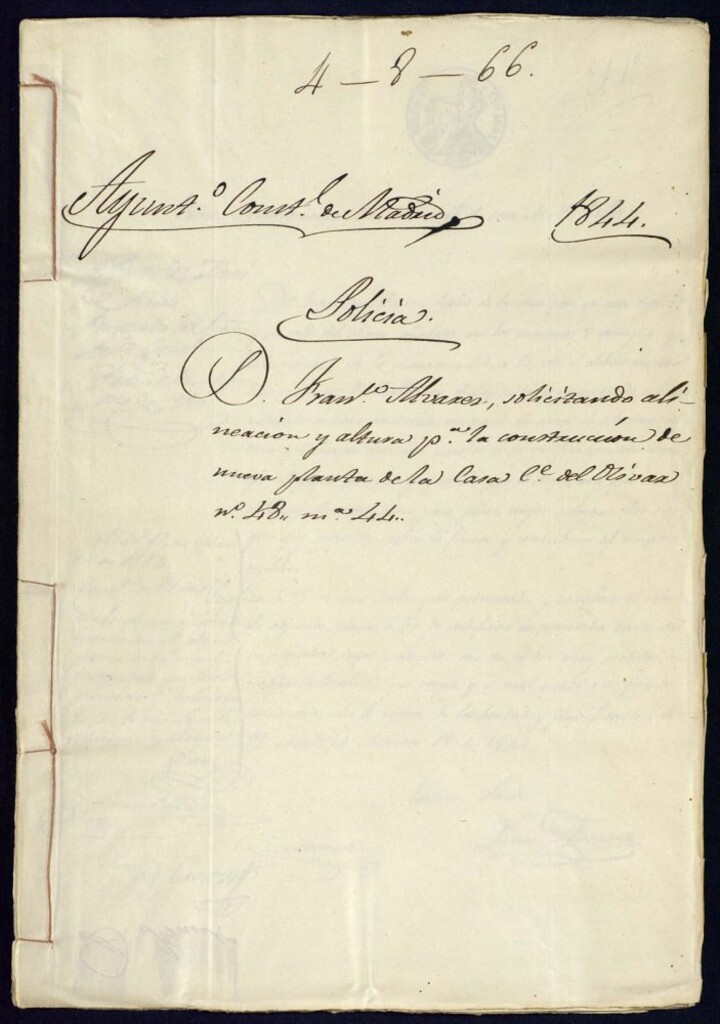 4 - 8 - 66.
Ayunt.º Const.l de Madrid 1844.
Policia.
D. Fran.co Alvarez, solicitando ali-
neacion y altura p.a la construccion de
nueva planta de la Casa C.e del Olivar
n.º 48,, m.a 44..